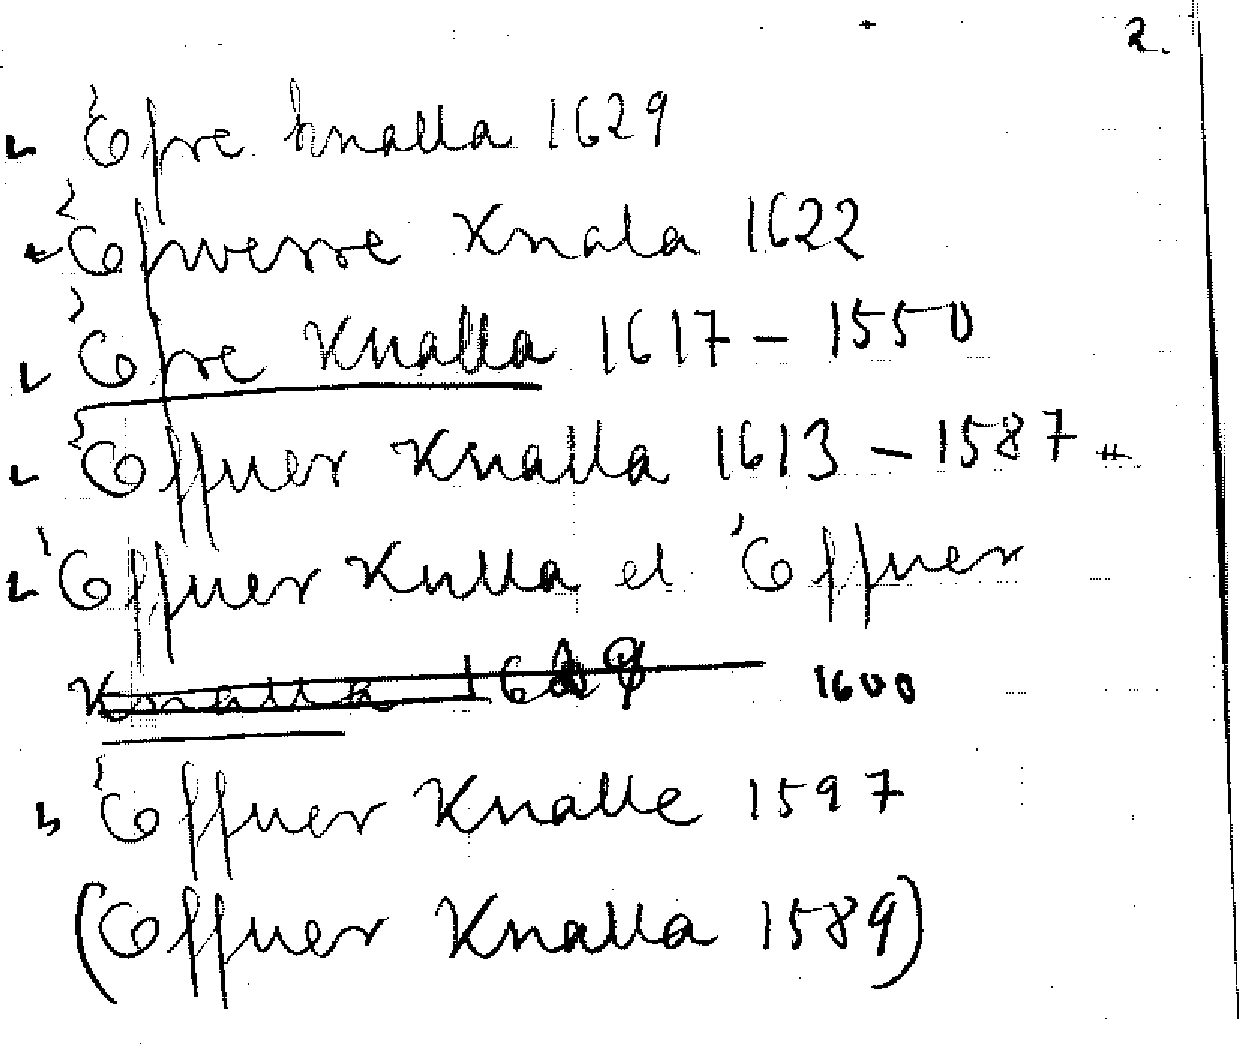 2.
Öfre knalla 1629
Öfwerre Knala 1622
Öfre Knalla 1617 - 1550
Öffuer Knalla 1613 - 1587
Öffuer Kulla el Öffuer
Knalla 1600
Öffuer Knalle 1597
(Öffuer Knalla 1589)